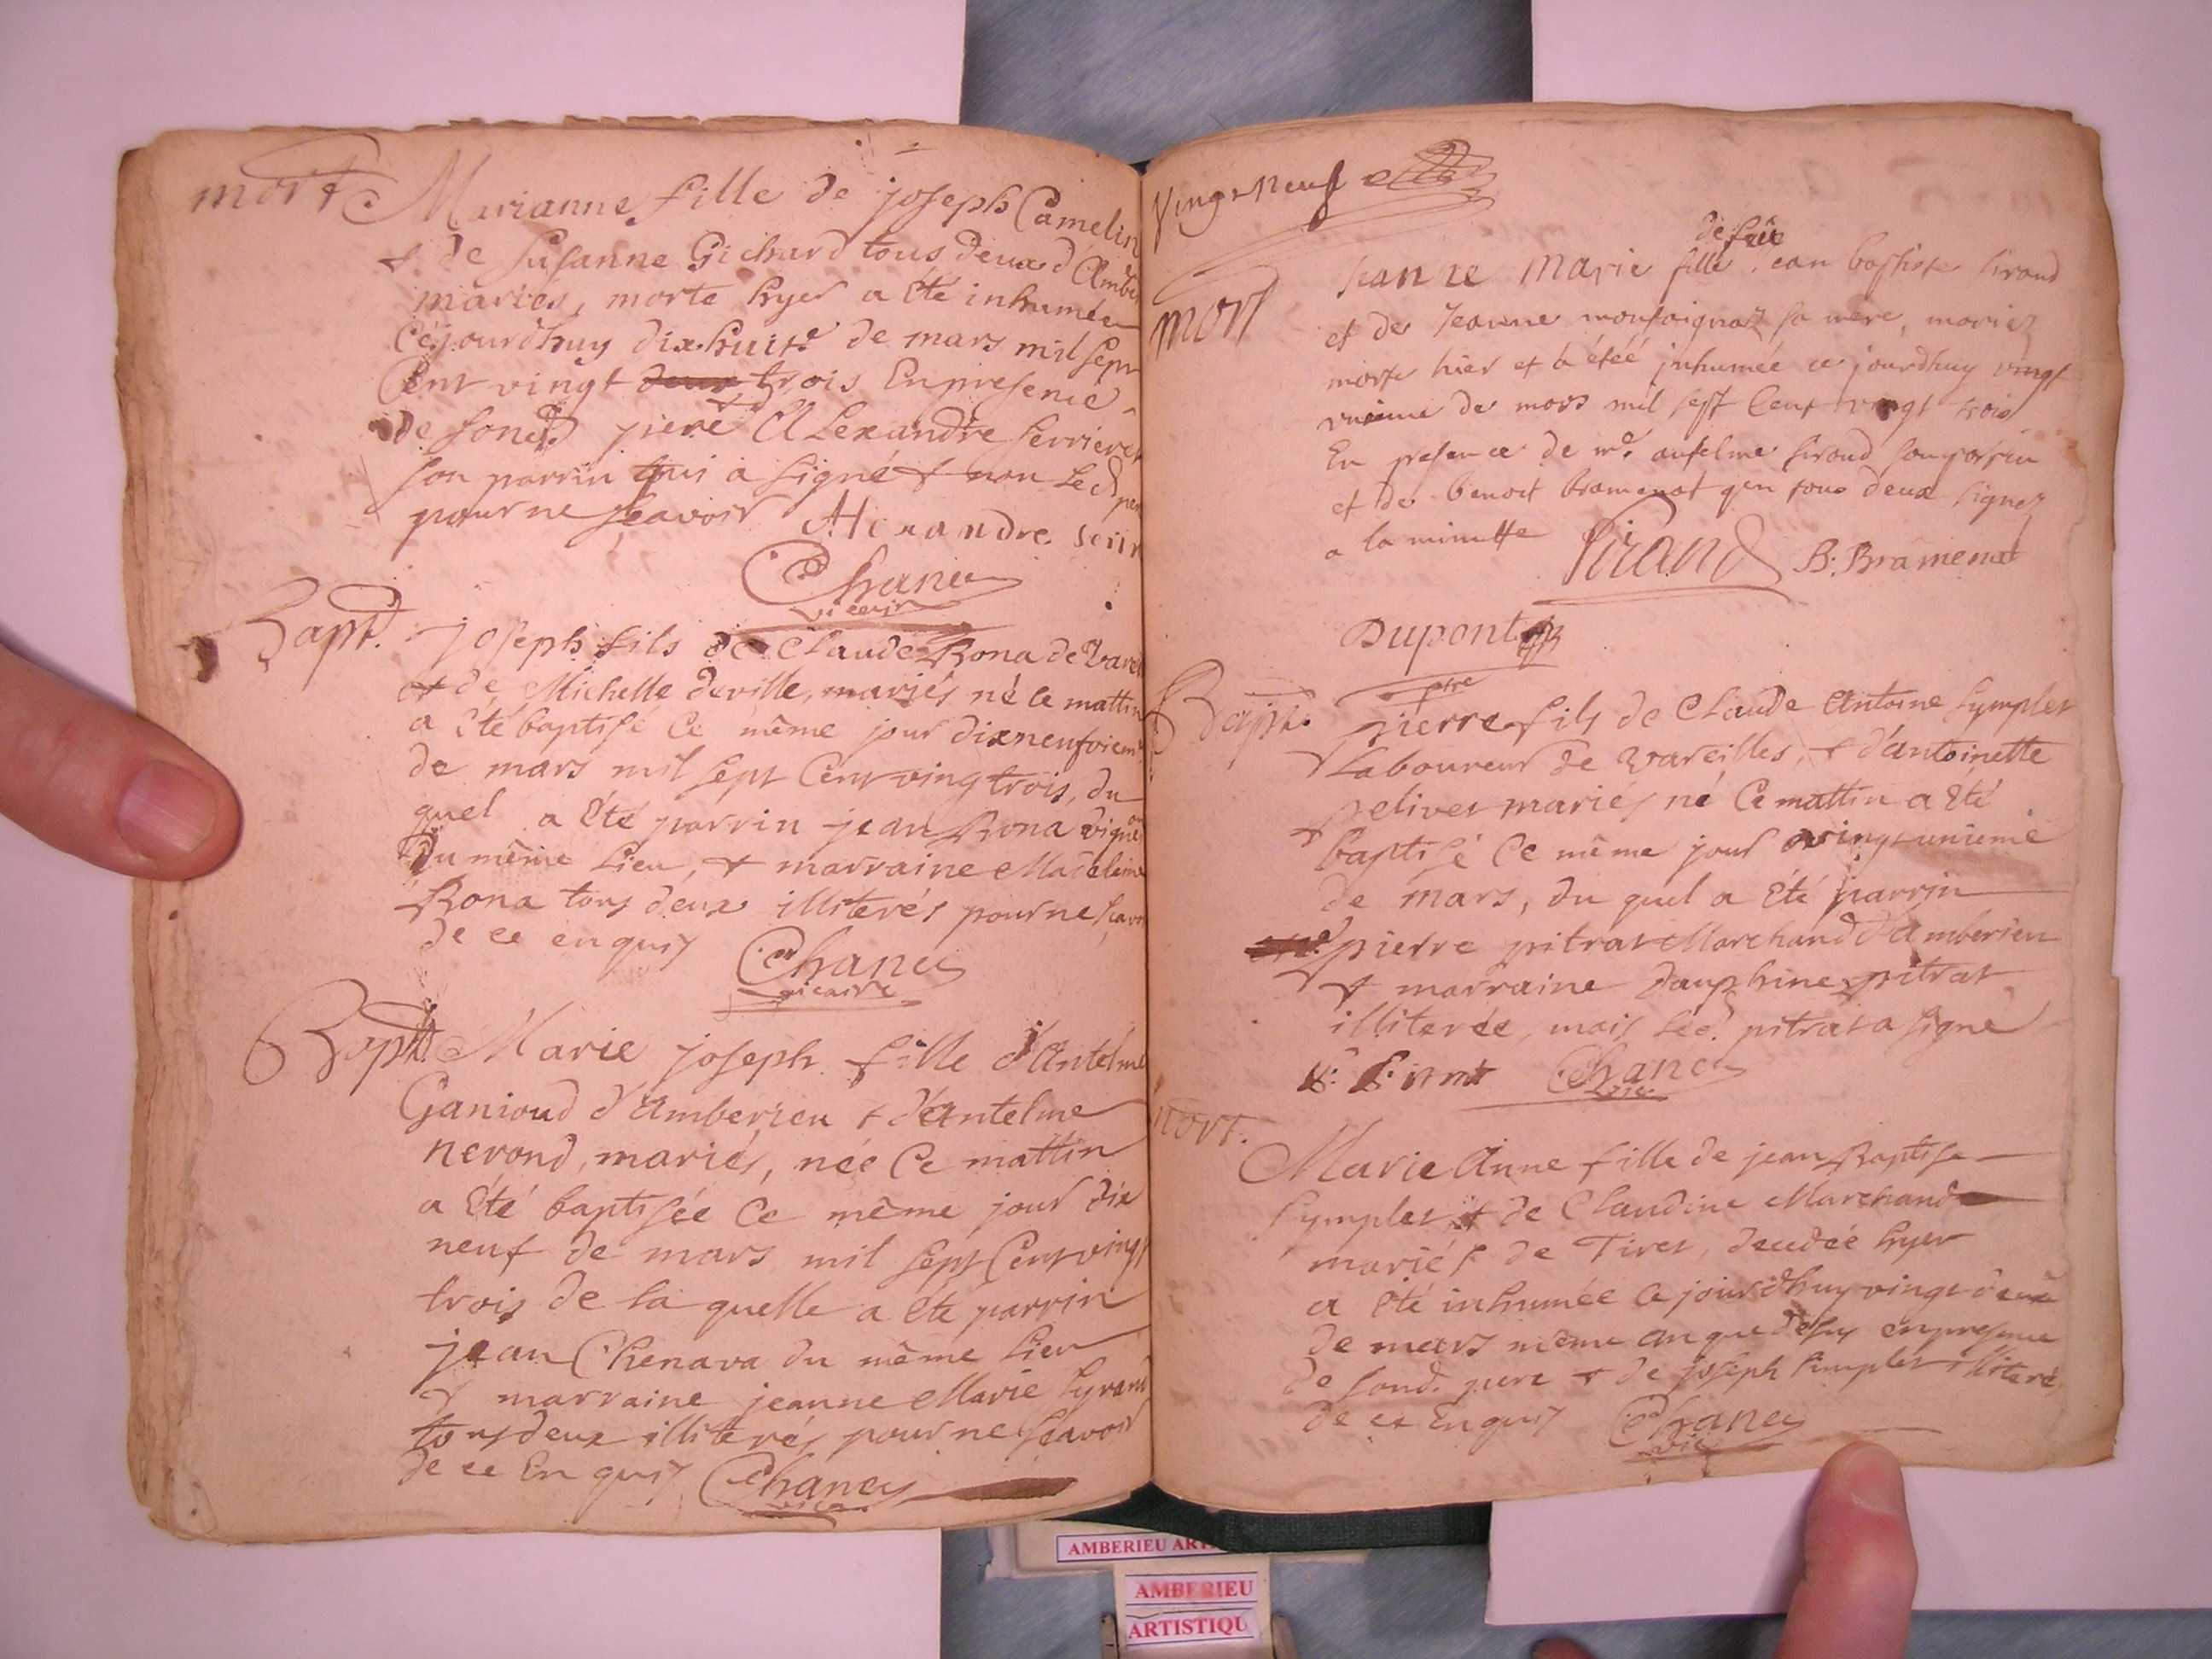 mort Marianne fille de joseph Camelin
& de susanne Gichard tous deux d'Amber
mariés, morte hyer a été inhumée
Cejourdhuy dix-huit de mars mil sept
Cent vingt trois En presence
de sond pere & d'Alexandre serrieres
son parrin qui a signé & non led. pere
pour ne sçavoir Alexandre serr
Chane
vicaire
Bapt. joseph fils de Claude Bona de Vareil
et de Michelle deville, mariés né ce mattin
a été baptisé Ce même jour dixneufviem
de mars mil sept Cent vingt trois, du
quel a été parrin jean Bona vigneron
Du même Lieu, & marraine Madelaine
Bona tous deux illiterés pour ne sçavoir
de ce enquis Chane
vicaire
Bapt. Marie joseph fille d'Antelme
Ganioud d'Amberieu & d'Antelme
nerond, mariés, née Ce mattin
a été baptisée Ce même jour dix
neuf de mars mil sept Cent vingt
trois de la quelle a été parrin
jean Chenava du même Lieu
& marraine jeanne Marie Syrand
tous deux illiterés pour ne sçavoir
de ce Enquis Chane
vica
Vingt neuf
de feu
mort Jeanne Marie fille jean baptiste sirand
et de Jeanne monfaignat sa mere, mariez
morte hier et a étéé jnhumée ce jourdhuy vingt
unieme de mars mil sept Cent vingt trois
En presence de mr. anselme sirand son parrin
et de benoit bramenat qui tous deux signez
a la minutte Sirand B: Bramenat
Dupont
ptre
Bapt. pierre fils de Claude Antoine Symplet
Laboureur de Vareilles, & d'antoinette
pelivet mariés né Ce mattin a été
baptisé Ce même jour vingt unieme
de mars, du quel a été parrin
pierre pitrat Marchand d'Amberieu
& marraine dauphine pitrat
illiterée, mais led. pitrat a signé
Chane
vic.
mort.
Marie Anne fille de jean Baptiste
Symplet & de Claudine Marchand
mariés de Tiret, decedée hyer
a été inhumée Ce jourdhuy vingt deux
de mars même an que desus en presence
de sond. pere & de joseph simplet illiteré
de ce Enquis Chane
vic
AMBERIEU ART
AMBERIEU
ARTISTIQU